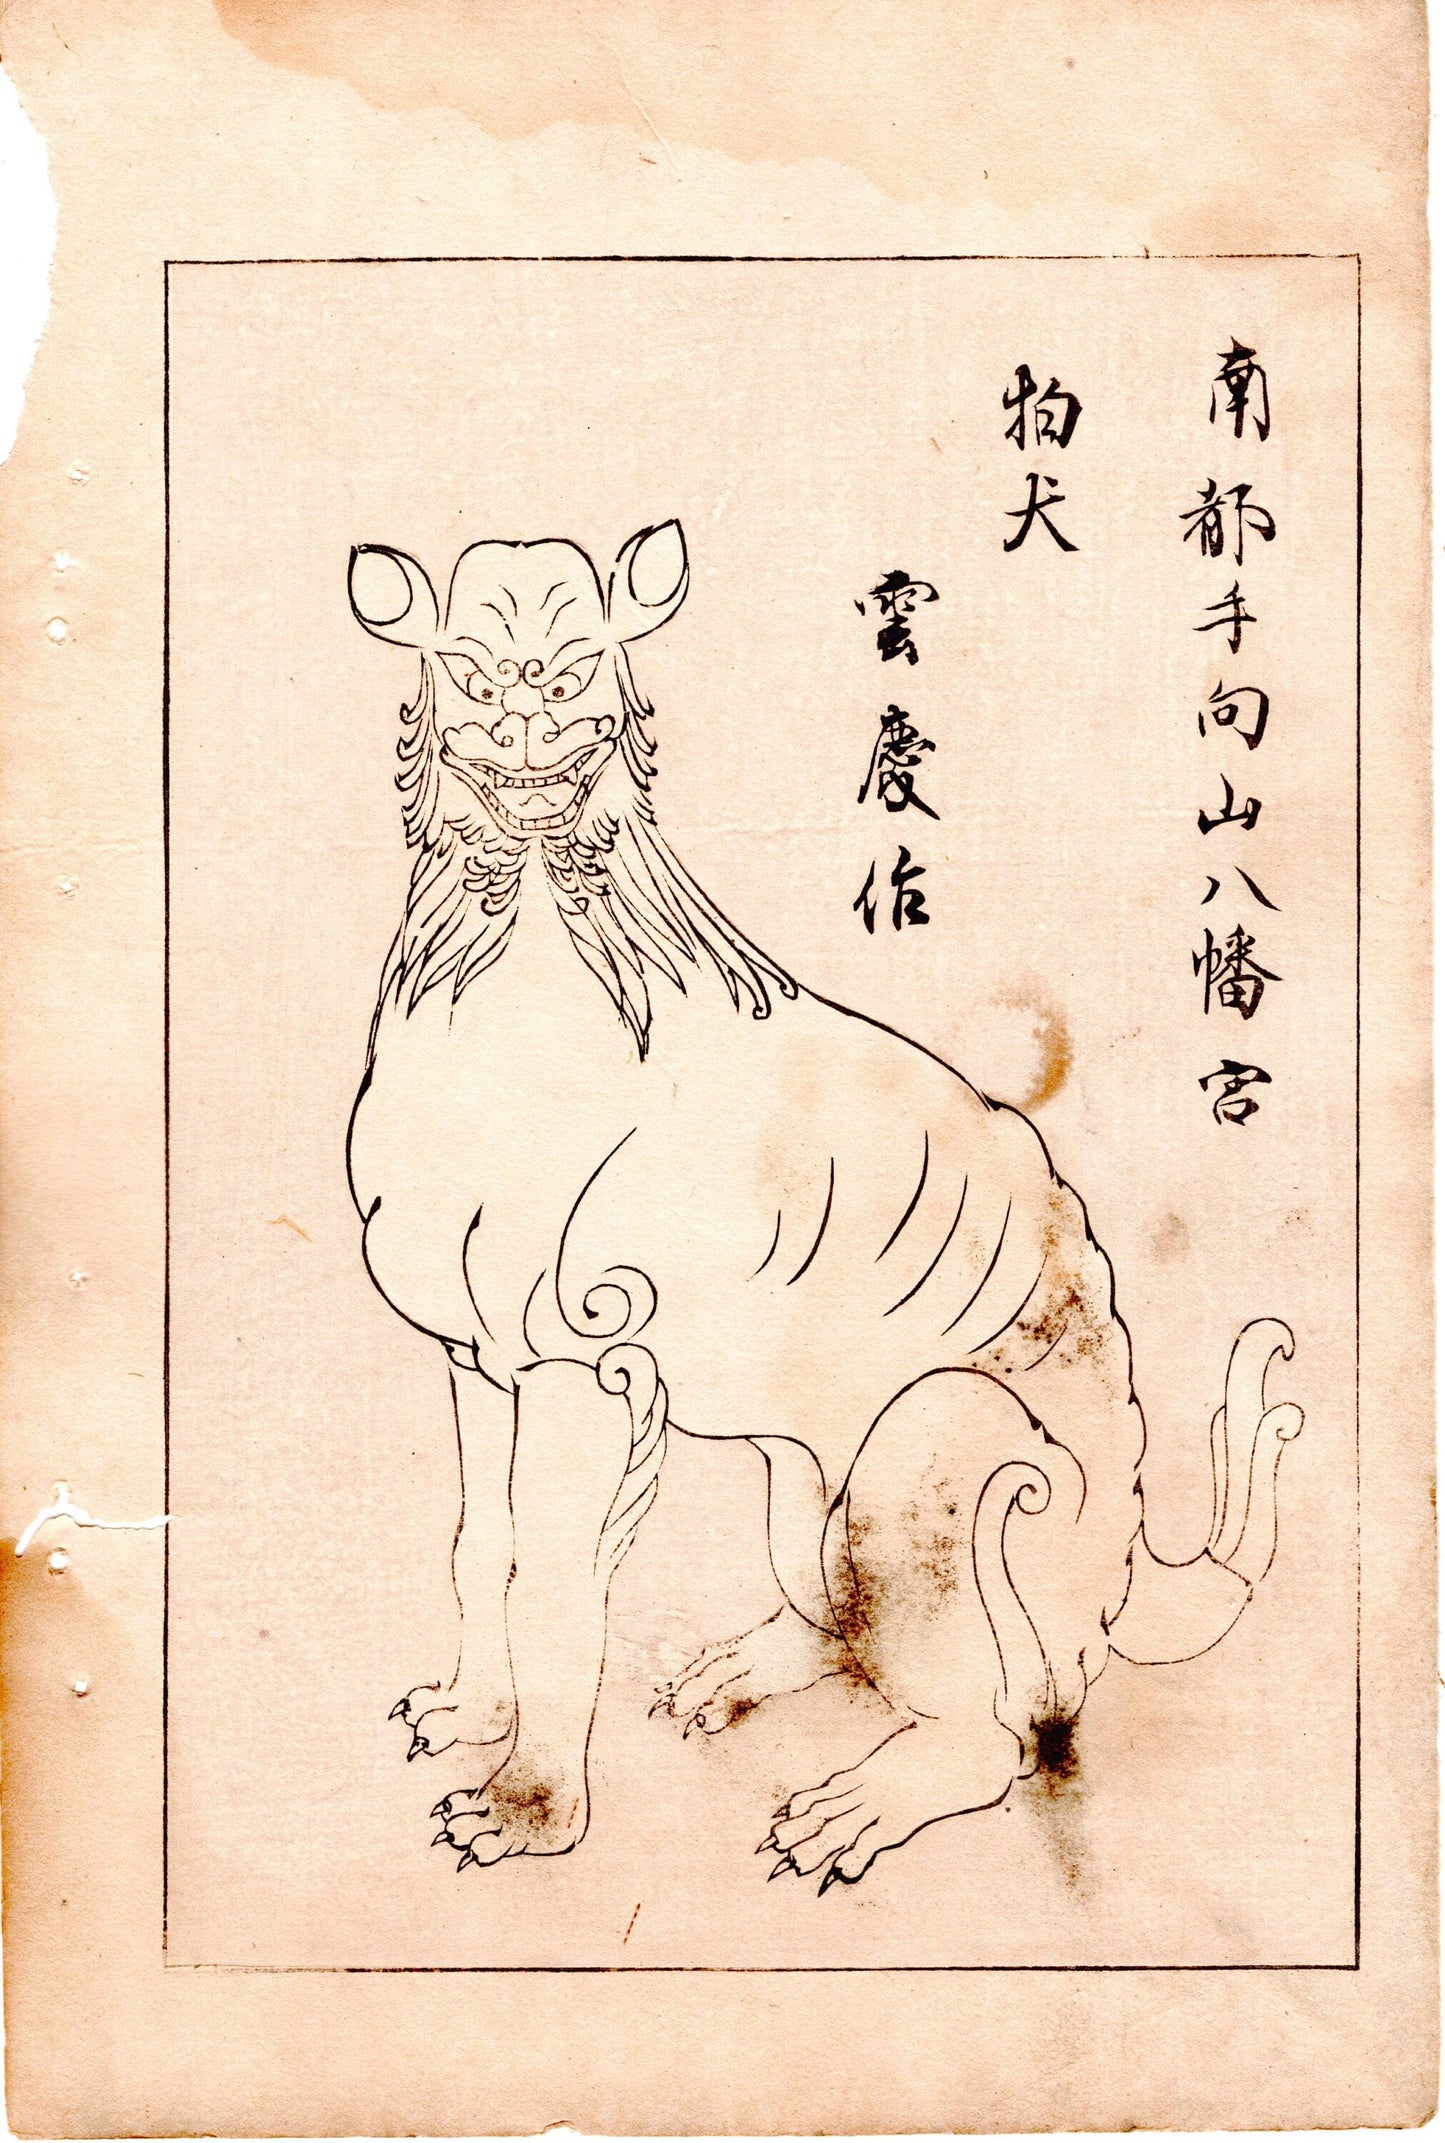 南都手向山八幡宮
狛犬
雲慶作